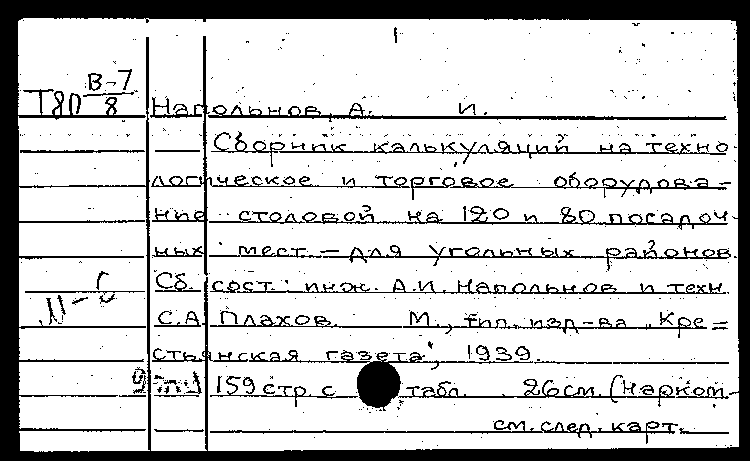 В-7
Т80 8
Напольнов, А. И.
Сборник калькуляций на техно-
логическое и торговое оборудова=
ние столовой на 120 и 80 посадоч-
ных мест. – для угольных районов.
Сб. сост.: инж. А.И. Напольнов и техн.
С.А. Плахов. М., тип. изд-ва „Кре=
стьянская газета", 1939.
159 стр. с табл. 26 см. (Нарком-
см. след. карт.